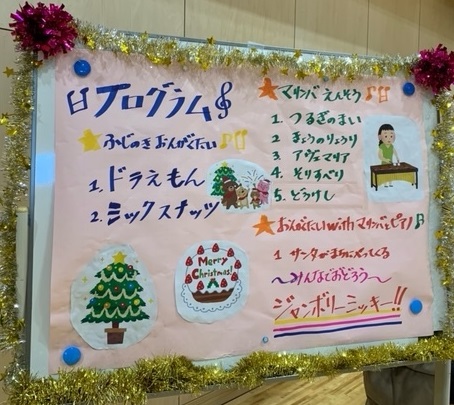 プログラム
ふじのき おんがくたい
1. ドラえもん
2. ミックスナッツ
Merry Christmas!
マリンバ えんそう
1. つるぎのまい
2. きょうのりょうり
3. アヴェマリア
4. そりすべり
5. どうけし
おんがくたい with マリンバとピアノ
1 サンタがまちにやってくる
〜みんなでおどろう〜
ジャンボリーミッキー!!